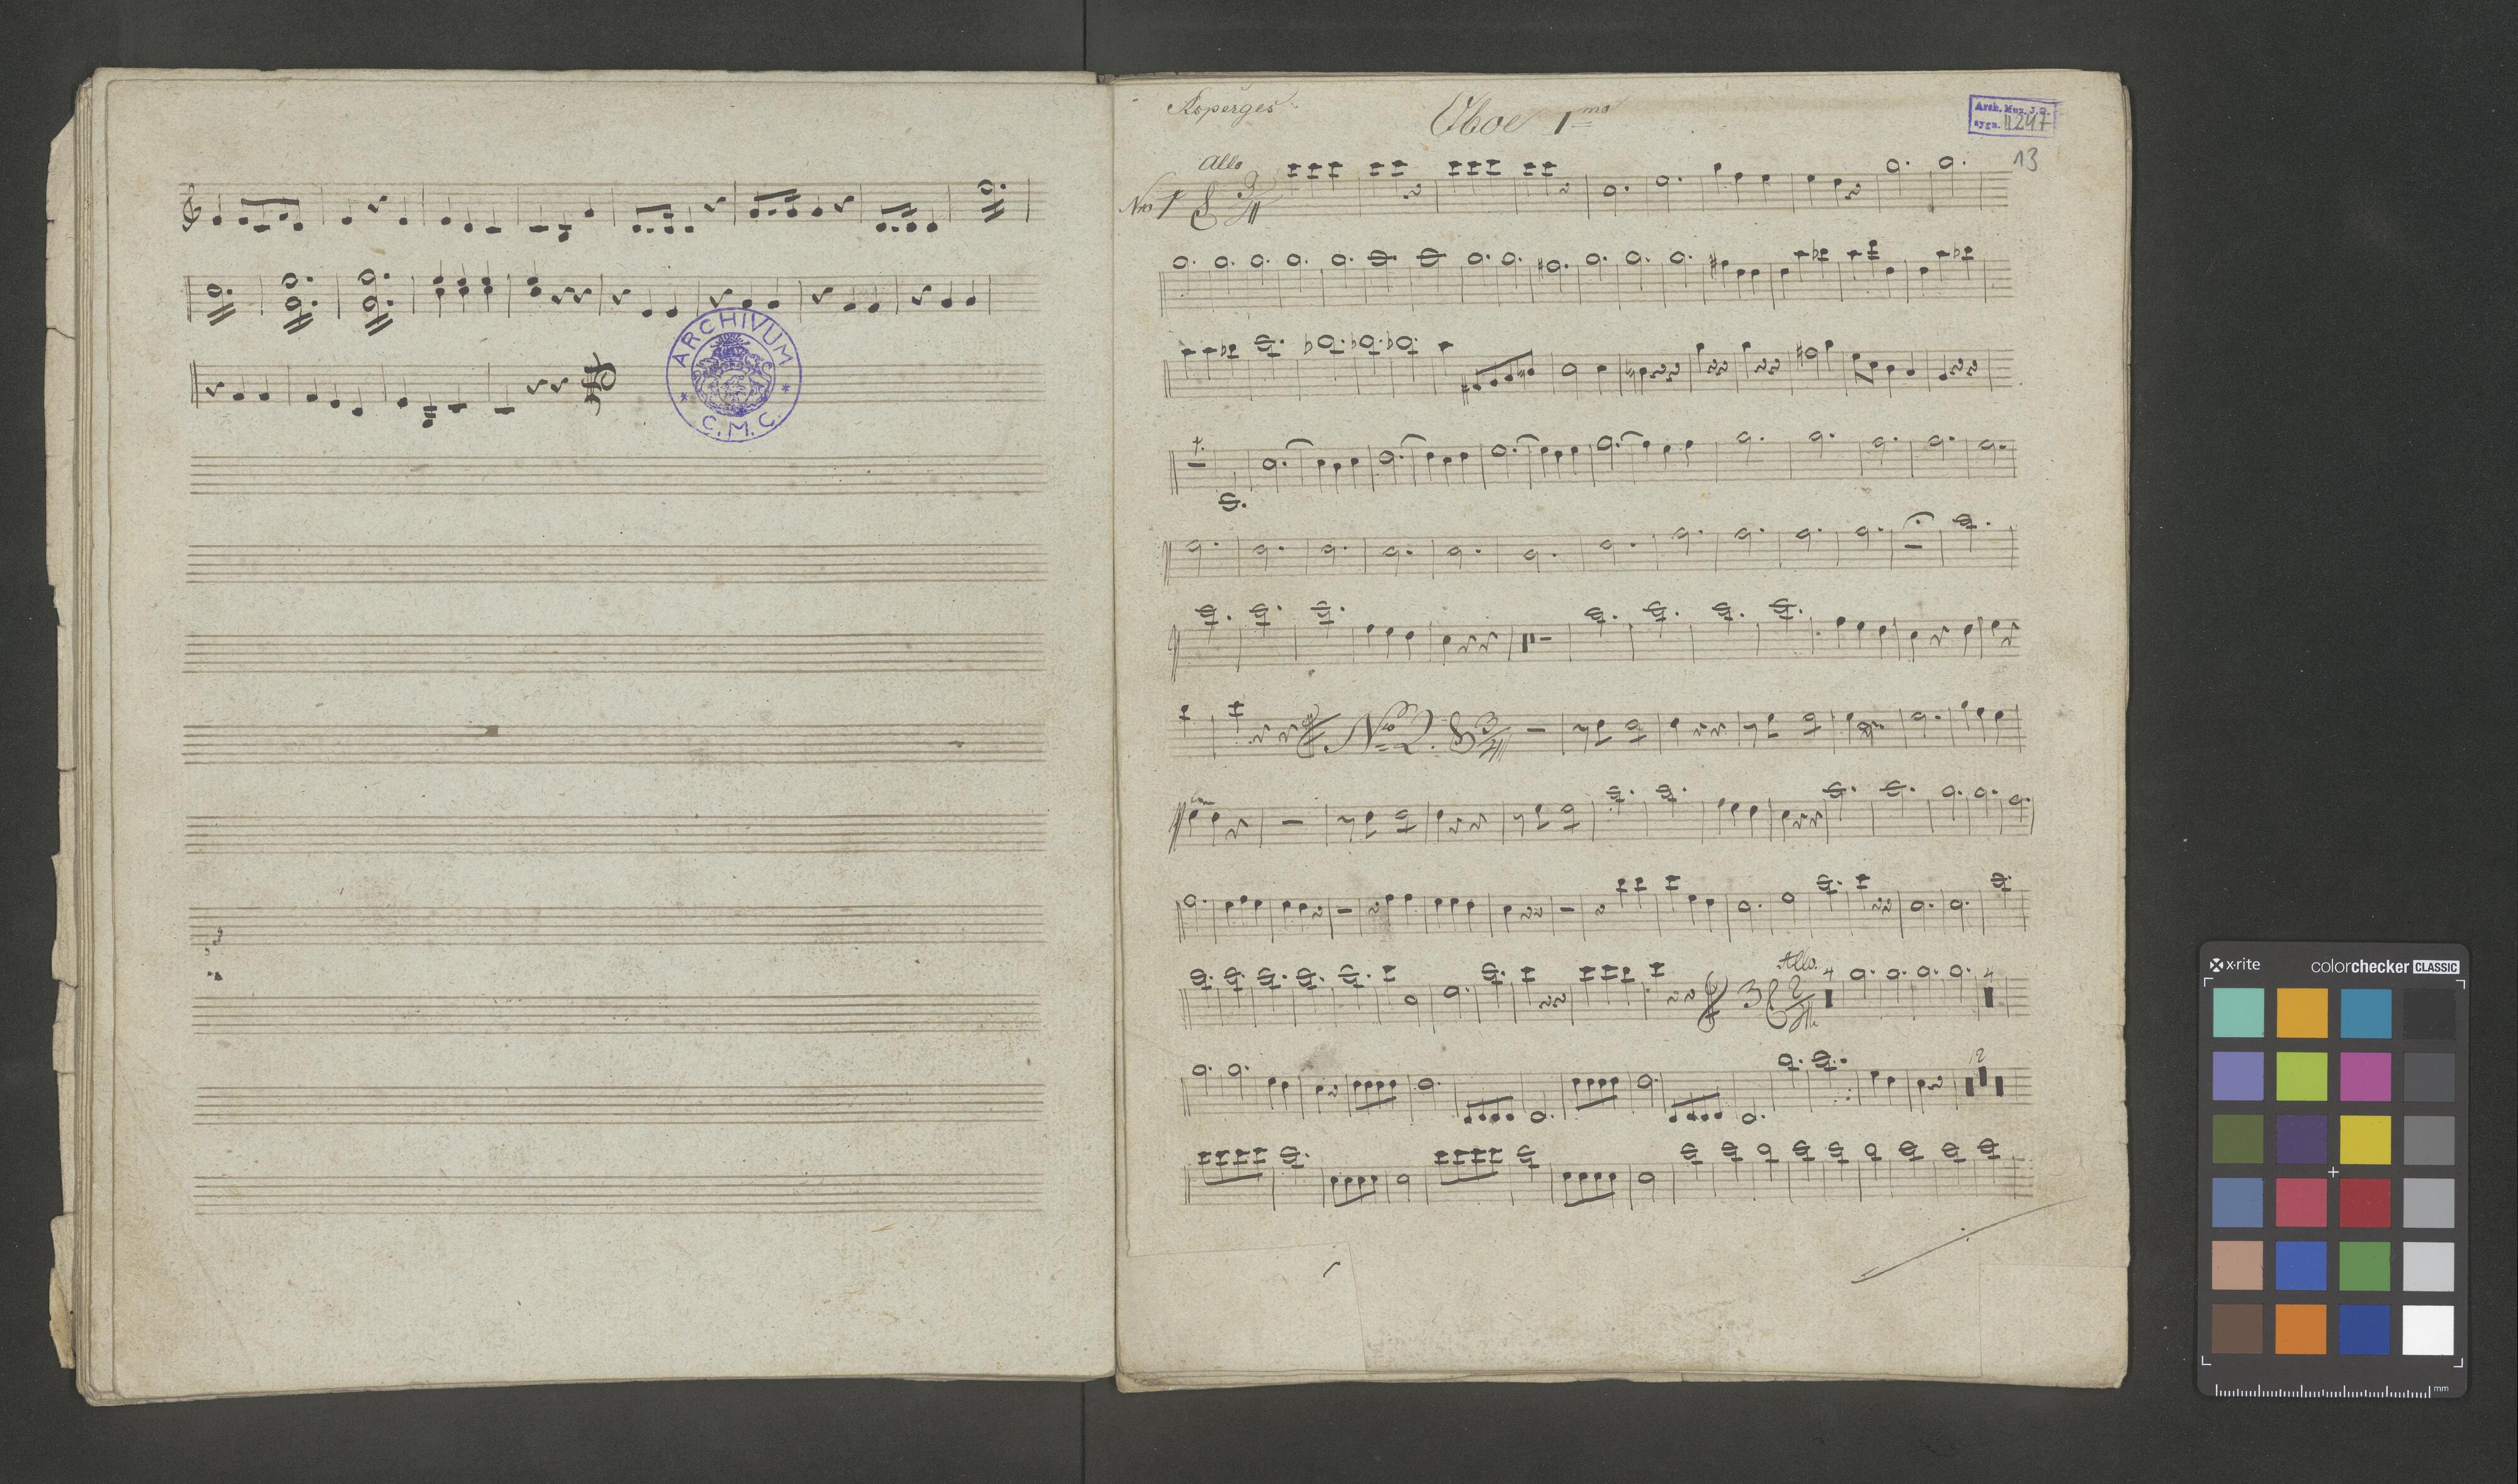 ARCHIVUM
C.M.C.
Asperges
Oboe 1mo
Arch. Muz. J.G.
sygn. II 247
13
Allo
Nro 1
3/4
Nro 2. 3/4
Allo.
3 2/4
4
4
12
x-rite
colorchecker CLASSIC
mm